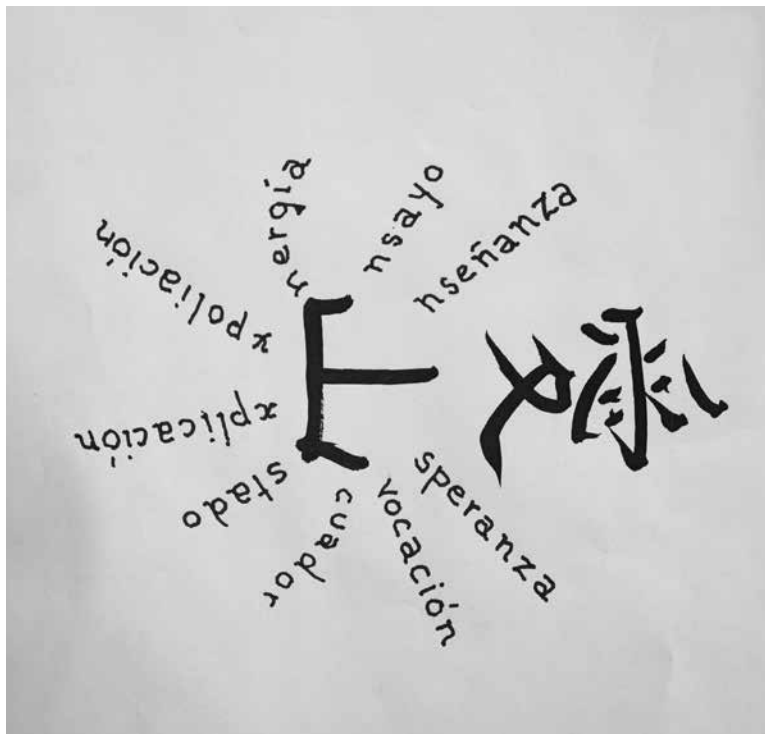 E
nergía
nsayo
nseñanza
speranza
vocación
cuador
stado
xplicación
xpoliación
愛